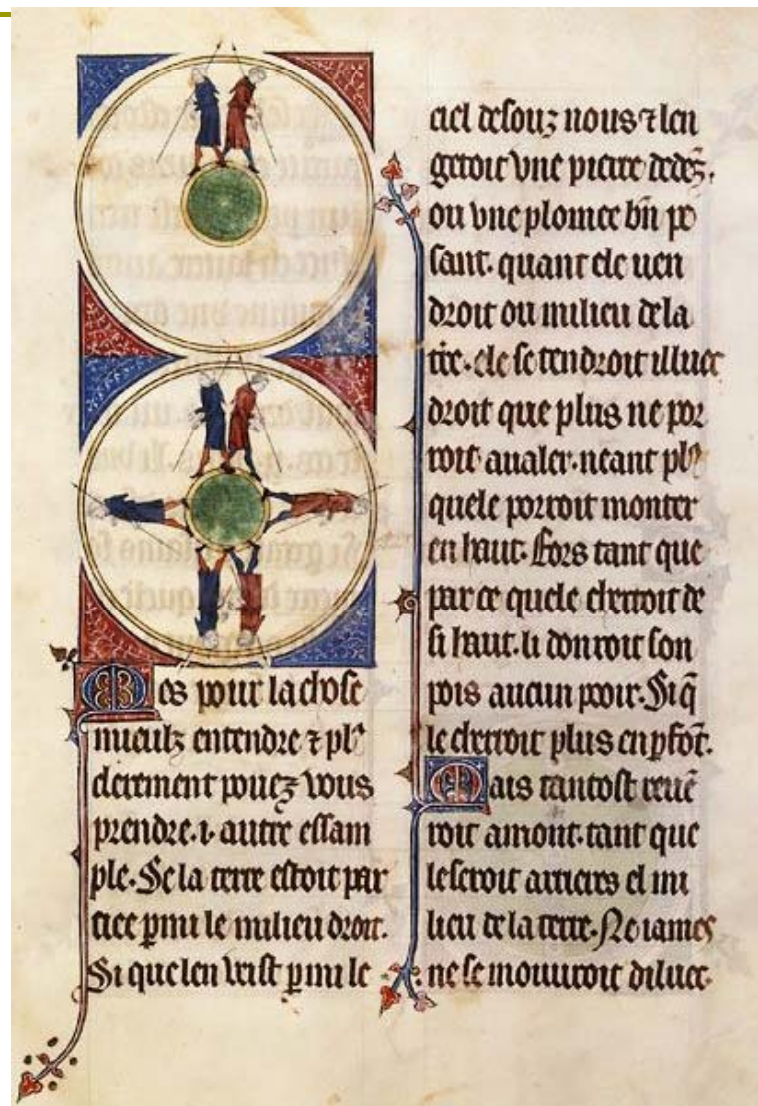 Mes pour la chose
mieulz entendre ⁊ plꝰ
clerement pouez vous
prendre .i. autre essam
ple. Se la terre estoit par
tiee ꝑmi le milieu droit.
Si que len veist ꝑmi le
ciel desouz nous ⁊ len
getoit vne pierre dedēs.
ou vne plomee bn̄ pe
sant. quant ele uen
droit ou milieu de la
t̄re. ele se tendroit illuec
droit que plus ne por
roit aualer. neant plꝰ
quele porroit monter
en haut. Fors tant que
par ce quele cherroit de
si haut. li donroit son
pois aucun pooir. Si q̄
le cherroit plus en ꝑfōt.
Mais tantost reuē
roit amont. tant que
le seroit arriers el mi
lieu de la terre. Ne iames
ne se mouuroit diluec.